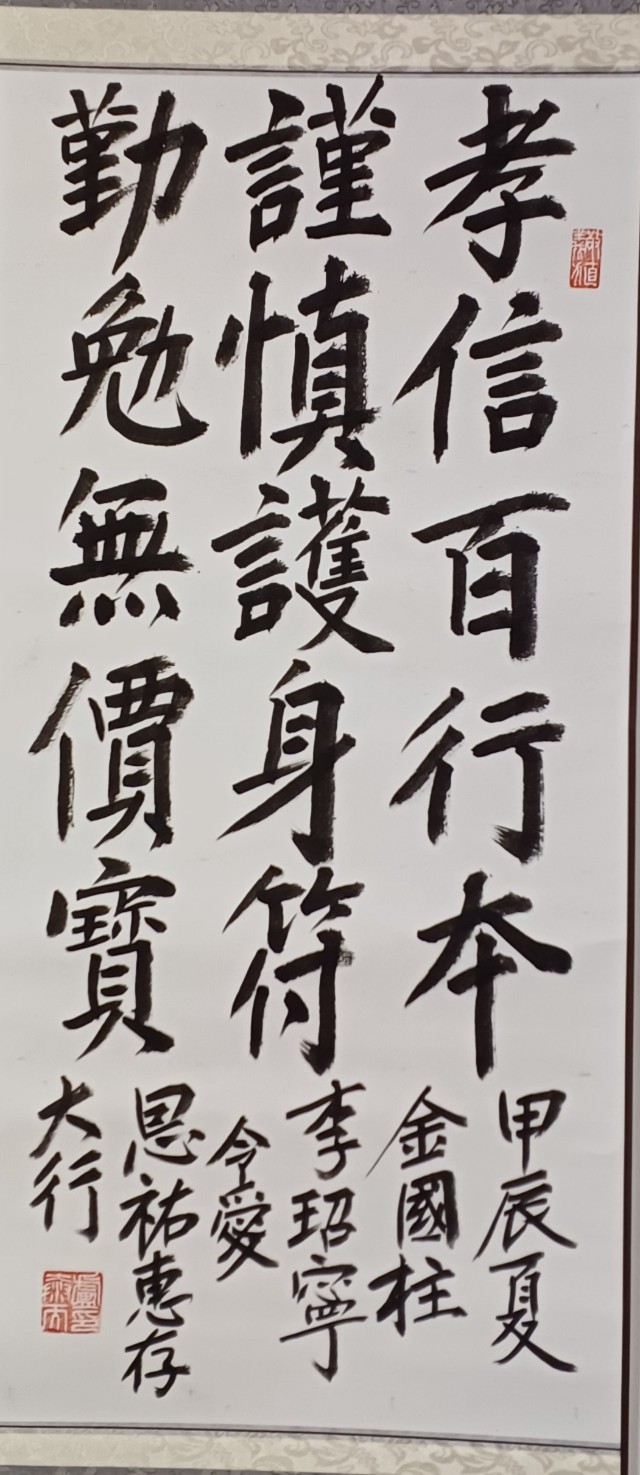 孝信百行本
謹慎護身符
勤勉無價寶
甲辰夏
金國柱
李玿寧
令愛
恩祐惠存
大行